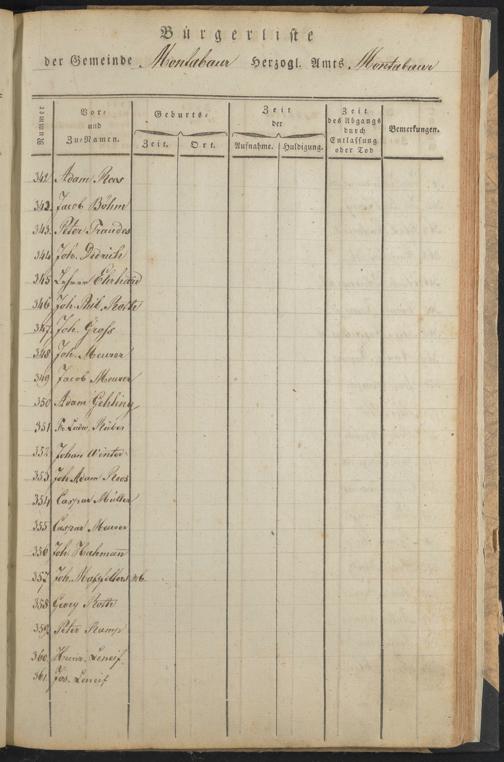 Bürgerliste
der Gemeinde Montabaur Herzogl. Amts Montabaur
Nummer
Vor-
und
Zu-Namen.
Geburts-
Zeit. Ort.
Zeit
der
Aufnahme. Huldigung.
Zeit
des Abgangs
durch
Entlassung
oder Tod
Bemerkungen.
341. Adam Roos
342. Jacob Böhm
343. Peter
344 Joh. Diedrich
345 Ehrhard
346 Joh. Phil. Roth
347. Joh. Groß
348 Joh. Meurer
349 Jacob Meurer
350 Adam Gehling
351 Ludw. Stüber
352. Johan Winter
353 Joh Adam Roos
354 Caspar Müller
355 Caspar Meurer
356 Joh. Hahmann
357 Joh.
358 Georg Roth
359 Peter Kamp
360
361 Jos.